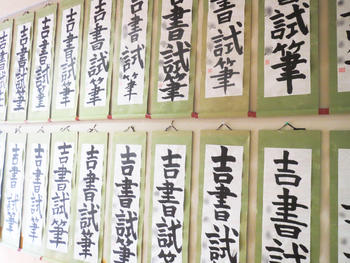 吉書試筆
吉書試筆
吉書試筆
吉書試筆
吉書試筆
吉書試筆
書試筆
書試筆
試筆
吉書試筆
吉書試筆
吉書試筆
吉書試筆
吉書試筆
吉書試
吉書試
吉書